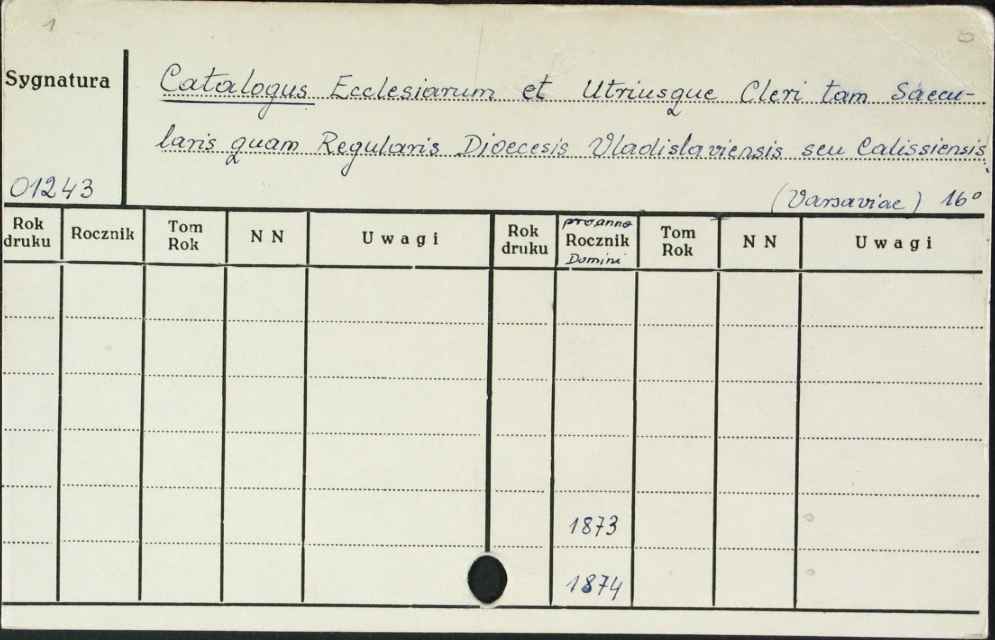 1
Sygnatura
Catalogus Ecclesiarum et Utriusque Cleri tam Saecu-
laris quam Regularis Dioecesis Vladislaviensis seu Calissiensis
01243
(Varsaviae) 16°
Rok druku Rocznik Tom Rok N N Uwagi Rok druku pro anno Rocznik Domini Tom Rok N N Uwagi
1873
1874